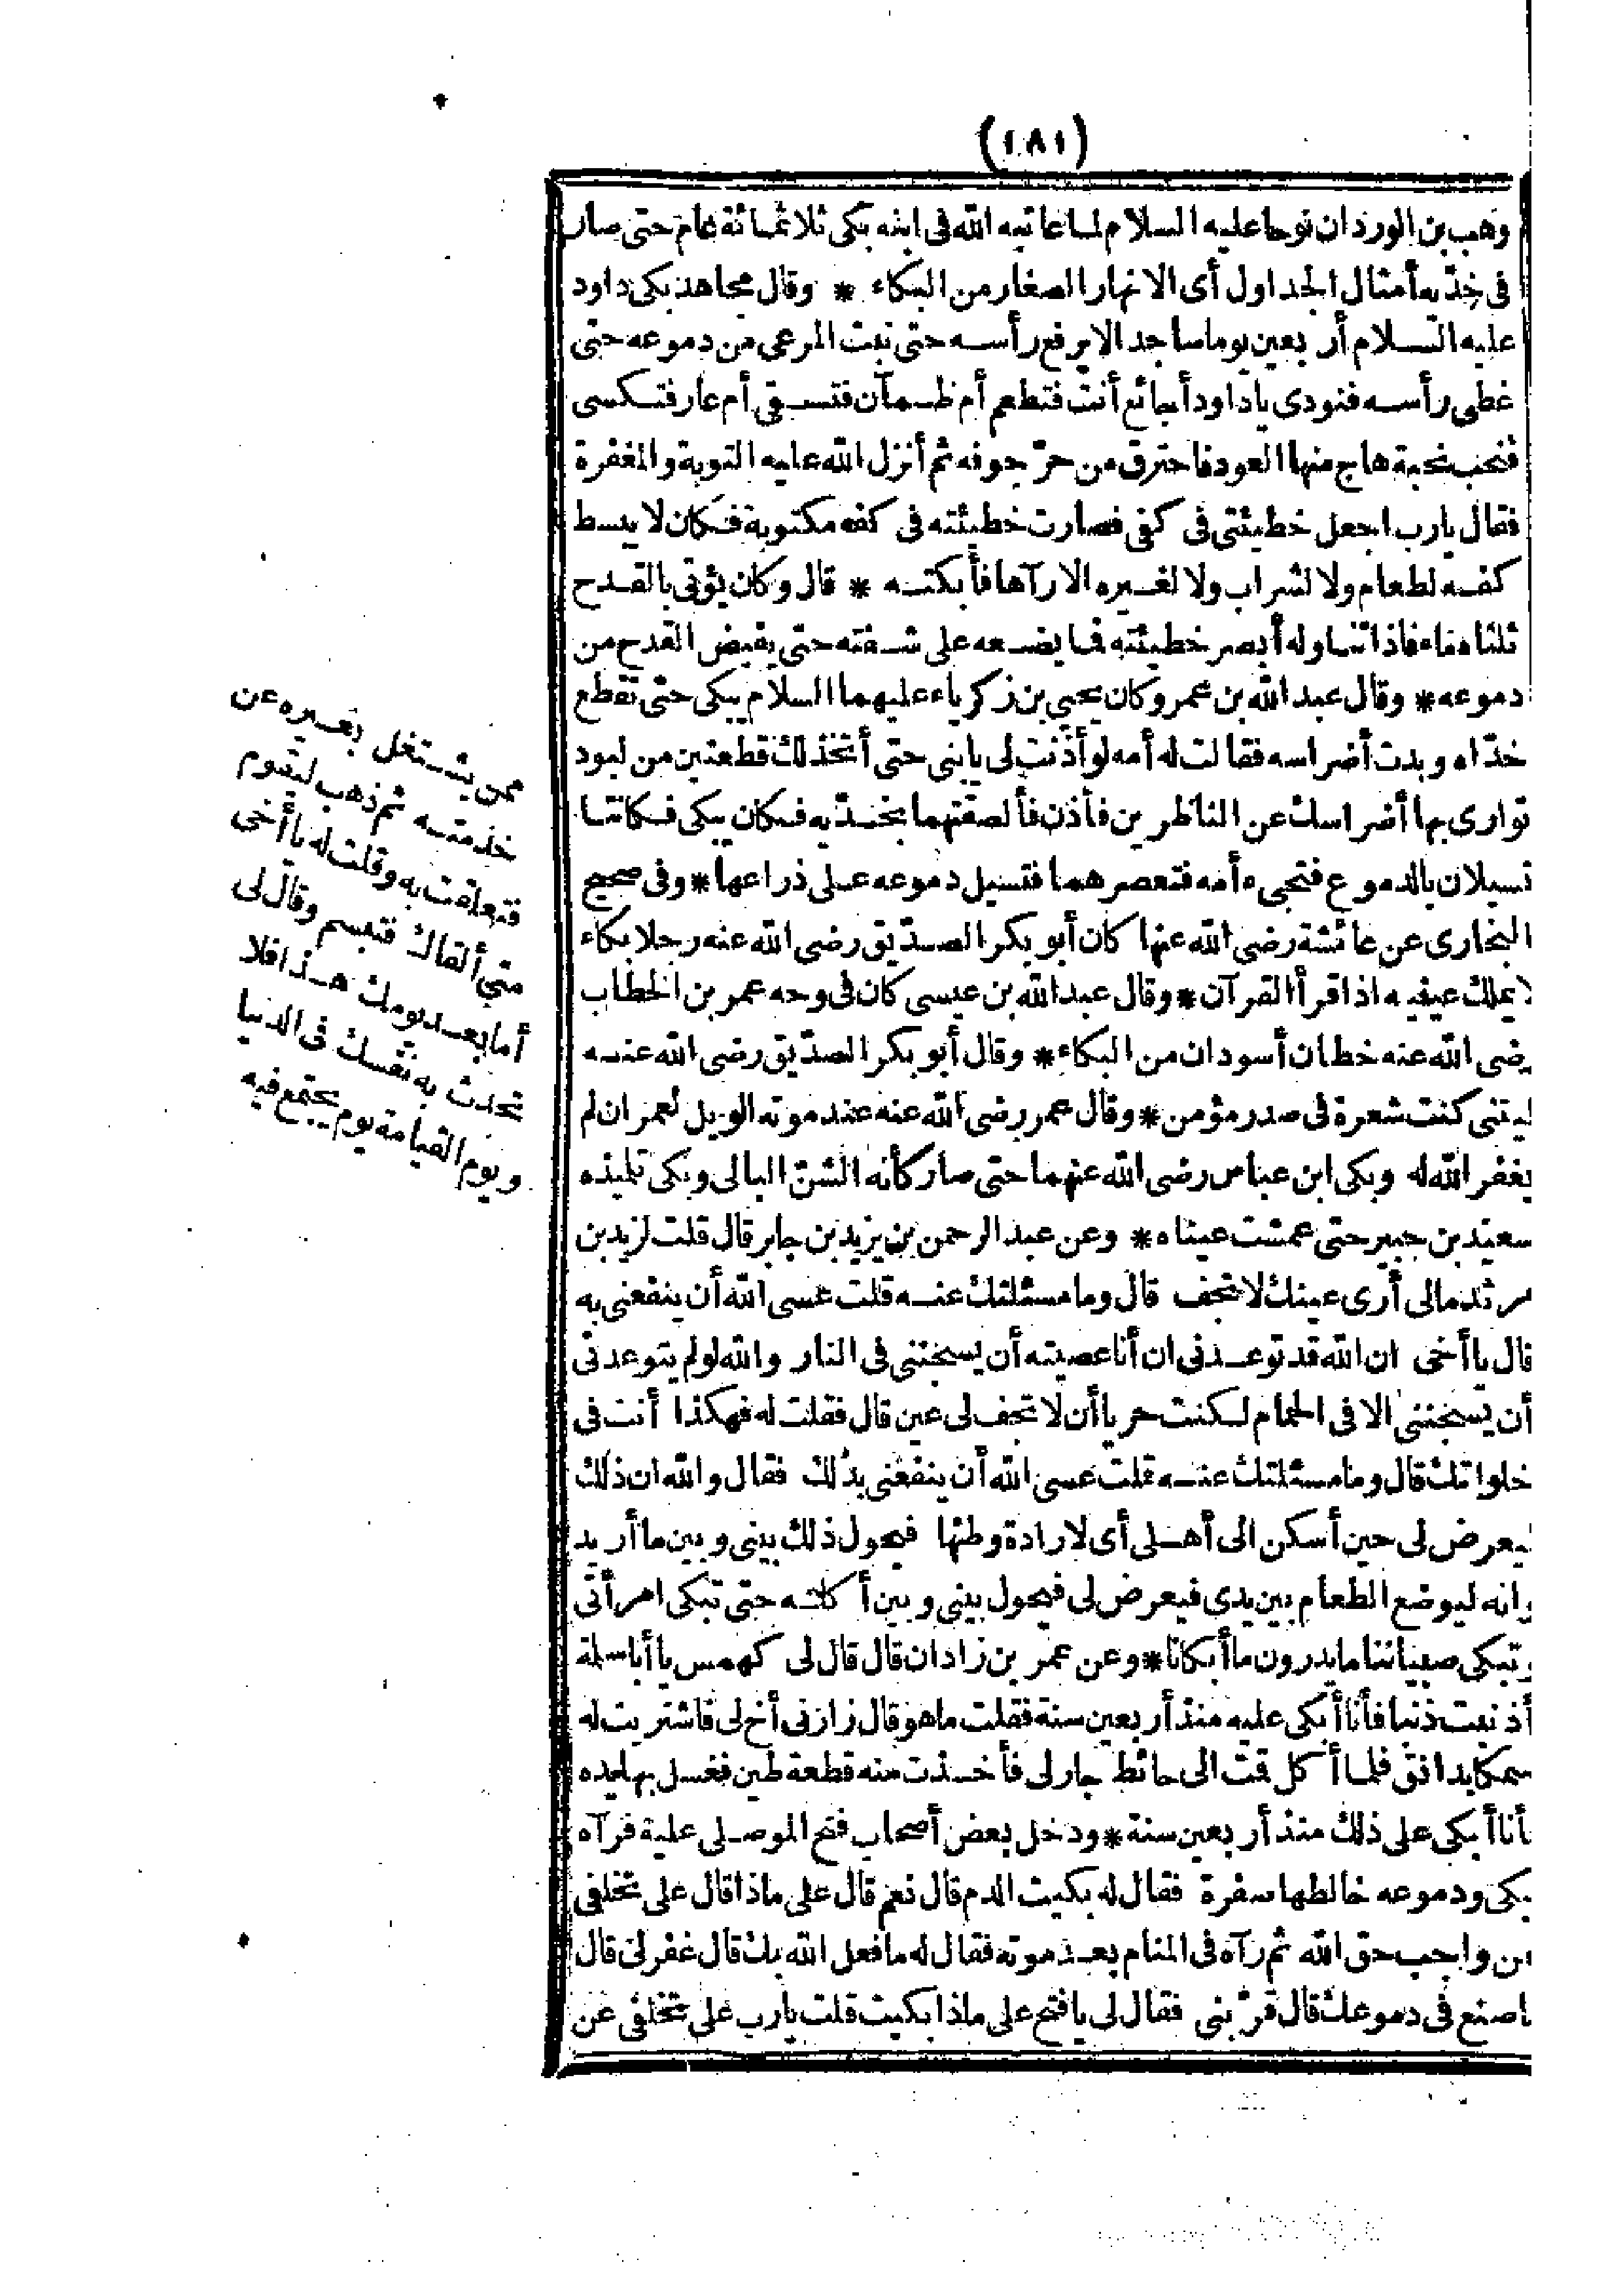 (١٨١)
وهب بن الورد ان نوحا عليه السلام لما عاتبه الله فى ابنه بكى ثلاثمائة عام حتى صار
فى خدّيه أمثال الجداول أى الانهار الصغار من البكاء * وقال مجاهد بكى داود
عليه السلام أربعين يوما ساجدا لا يرفع رأسه حتى نبت المرعى من دموعه حتى
غطى رأسه فنودى ياداود أجائع أنت فتطعم أم ظمآن فتسقى أم عار فتكسى
فنحب نحبة هاج منها العود فاحترق من حرّ جوفه ثم أنزل الله عليه التوبة والمغفرة
فقال يارب اجعل خطيئتى فى كفى فصارت خطيئته فى كفه مكتوبة فكان لا يبسط
كفه لطعام ولا لشراب ولا لغيره الا رآها فأبكته * قال وكان يؤتى بالقدح
ثلثاه ماء فاذا تناوله أبصر خطيئته فما يضعه على شفته حتى يفيض القدح من
دموعه * وقال عبد الله بن عمر وكان يحيى بن زكرياء عليهما السلام يبكى حتى تقطع
خدّاه وبدت أضراسه فقالت له أمه لو أذنت لى يابنى حتى أتخذ لك قطعتين من لبود
توارى بها أضراسك عن الناظرين فأذن فألصقتهما بخدّيه فكان يبكى فكانتا
تسيلان بالدموع فتجىء أمه فتعصرهما فتسيل دموعه على ذراعها * وفى صحيح
البخارى عن عائشة رضى الله عنها كان أبو بكر الصدّيق رضى الله عنه رجلا بكاء
لا يملك عينيه اذا قرأ القرآن * وقال عبد الله بن عيسى كان فى وجه عمر بن الخطاب
رضى الله عنه خطان أسودان من البكاء * وقال أبو بكر الصدّيق رضى الله عنه
ليتنى كنت شعرة فى صدر مؤمن * وقال عمر رضى الله عنه عند موته الويل لعمر ان لم
يغفر الله له وبكى ابن عباس رضى الله عنهما حتى صار كأنه الشنّ البالى وبكى تلميذه
سعيد بن جبير حتى عمشت عيناه * وعن عبد الرحمن بن يزيد بن جابر قال قلت لزيد بن
مرثد مالى أرى عينك لا تجف قال وما مسئلتك عنه قلت عسى الله أن ينفعنى به
قال يا أخى ان الله قد توعدنى ان أنا عصيته أن يسجننى فى النار والله لو لم يتوعدنى
أن يسجننى الا فى الحمام لكنت حريا أن لا تجف لى عين قال فقلت له فهكذا أنت فى
خلواتك قال وما مسئلتك عنه قلت عسى الله أن ينفعنى بذلك فقال والله ان ذلك
ليعرض لى حين أسكن الى أهلى أى لارادة وطئها فيحول ذلك بينى وبين ما أريد
وانه ليوضع الطعام بين يدى فيعرض لى فيحول بينى وبين أكله حتى تبكى امرأتى
وتبكى صبياننا ما يدرون ما أبكانا * وعن عمر بن زادان قال قال لى كهمس يا أبا سلمة
أذنبت ذنبا فأنا أبكى عليه منذ أربعين سنة فقلت ما هو قال زارنى أخ لى فاشتريت له
سمكا بدانق فلما أكل قمت الى حائط جار لى فأخذت منه قطعة طين فغسل بها يده
فأنا أبكى على ذلك منذ أربعين سنة * ودخل بعض أصحاب فتح الموصلى عليه فرآه
يبكى ودموعه خالطها سفرة فقال له بكيت الدم قال نعم قال على ماذا قال على تخلفى
عن واجب حق الله ثم رآه فى المنام بعد موته فقال له ما فعل الله بك قال غفر لى قال
ما صنع فى دموعك قال قرّبنى فقال لى يا فتح على ماذا بكيت قلت يارب على تخلفى عن
ممن يشتغل بغيره عن
خدمته ثم ذهب ليقوم
فتعلقت به وقلت له يا أخى
متى ألقاك فتبسم وقال لى
أما بعد يومك هذا فلا
تحدث به نفسك فى الدنيا
ويوم القيامة يوم يجتمع فيه